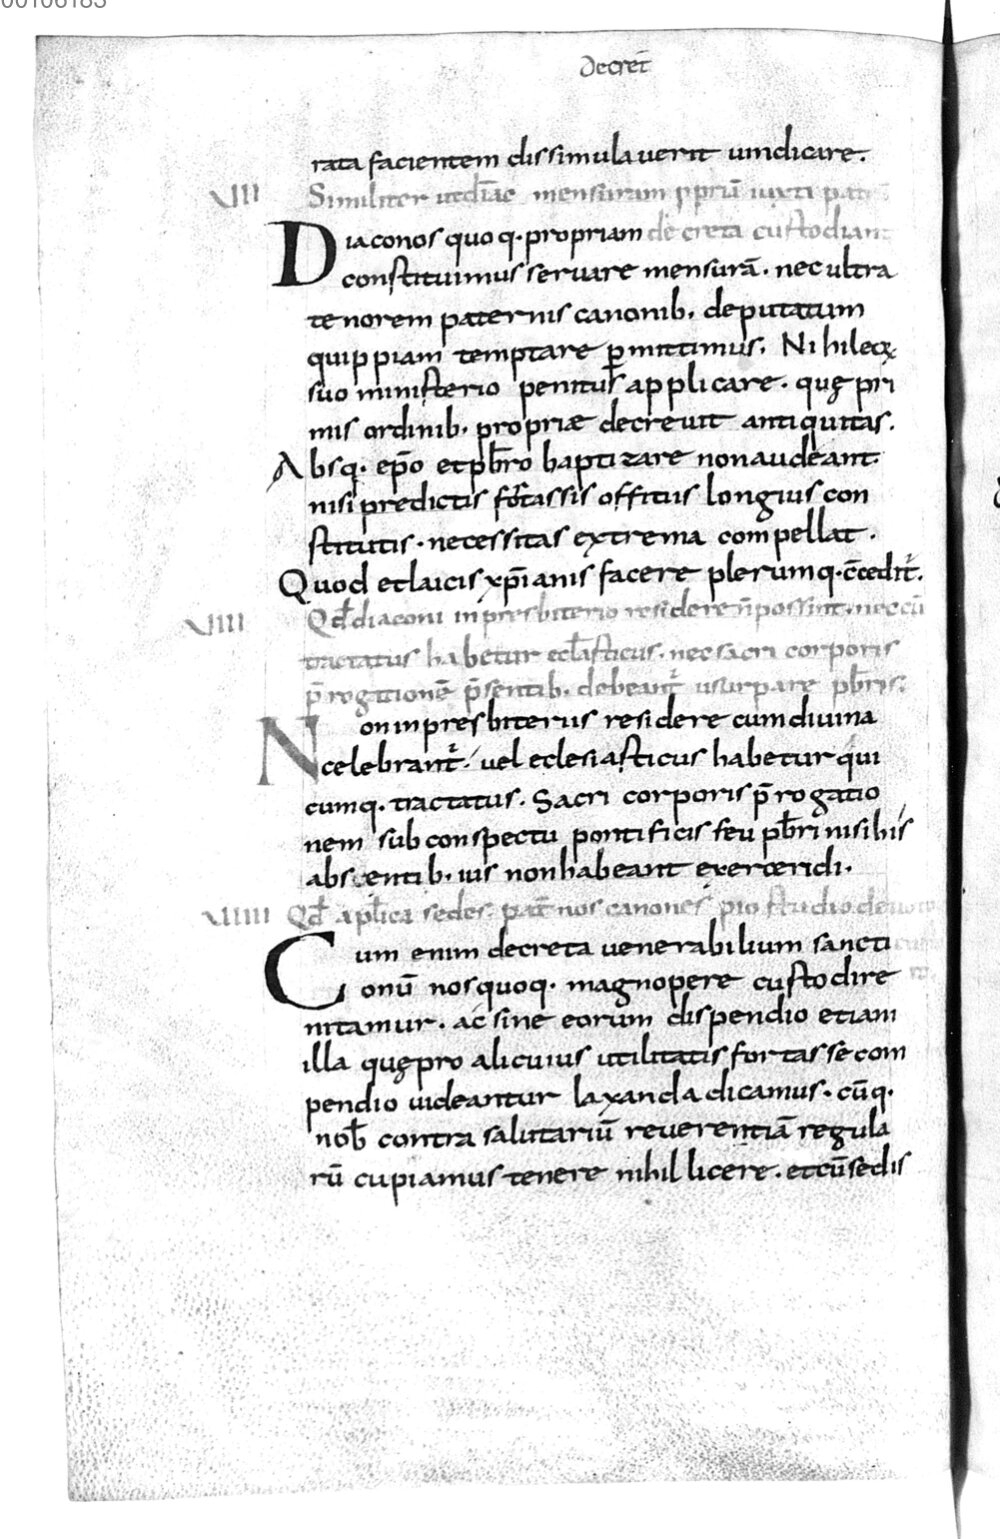 00106183
Decret̄
rata facientem dissimulauerit uindicare.
VIII Similiter ut diac̄ mensuram ppriū iuxta pat
Diaconos quoq· propriam decreta custodiant
constituimus seruare mensurā. nec ultra
tenorem paternis canonib. deputatum
quippiam temptare p̄mittimus. Nihil eoꝝ
suo ministerio penitus applicare. quę pri
mis ordinib. propriæ decreuit antiquitas.
Absq. ep̄o et pb̄ro baptizare non audeant.
nisi predictis fortassis offitiis longius con
stitutis. necessitas extrema compellat.
Quod et laicis xp̄ianis facere plerumq. c̄cedit̄.
VIIII Qd̄ diaconi in presbiterio residere n̄ possint. nec cū
tractatus habetur ecl̄asticus. nec sacri corporis
p̄rogationē p̄sentib. debeant̄ usurpare pb̄ris.
Non in presbiteriis residere cum diuina
celebrant̄. uel eclesiasticus habetur qui
cumq. tractatus. Sacri corporis p̄rogatio
nem sub conspectu pontificis seu pb̄ri nisi his
absentib. ius non habeant exercendi.
VIIIII Qd̄ apl̄ica sedes. pat̄nos canones pio studio
Cum enim decreta uenerabilium sancti
onū nos quoq. magnopere custodire
nitamur. ac sine eorum dispendio etiam
illa quę pro alicuius utilitatis fortasse com
pendio uideantur laxanda dicamus. cūq.
nob̄ contra salutariū reuerentiā regula
rū cupiamus tenere nihil licere. et cū sedis